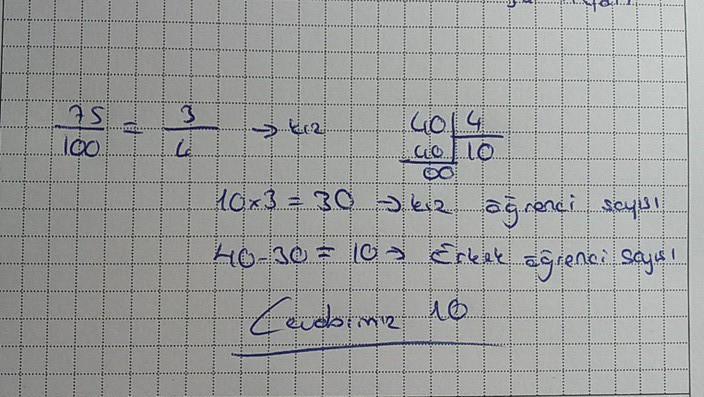 75/100 = 3/4 → kız
40 | 4
40 | 10
00
10x3 = 30 → kız öğrenci sayısı
40-30 = 10 → Erkek öğrenci sayısı
Cevabımız 10